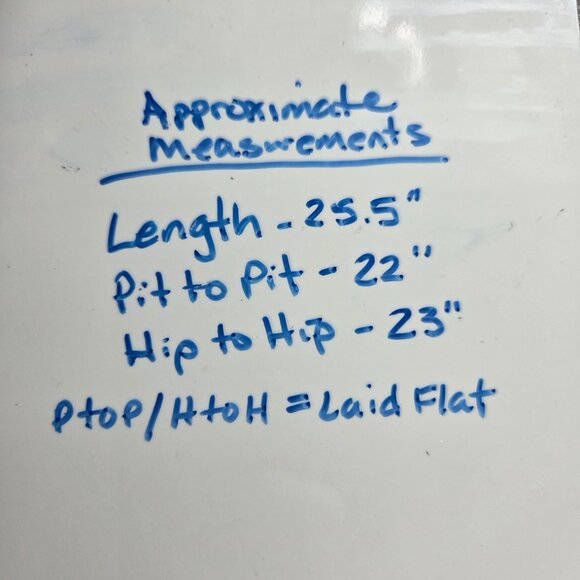 Approximate
Measurements
Length - 25.5"
Pit to Pit - 22"
Hip to Hip - 23"
P to P / H to H = Laid Flat